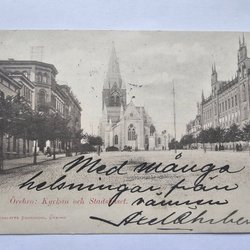 Örebro: Kyrkan och Stadshuset.
Med många
helsningar från
vännen
Axel